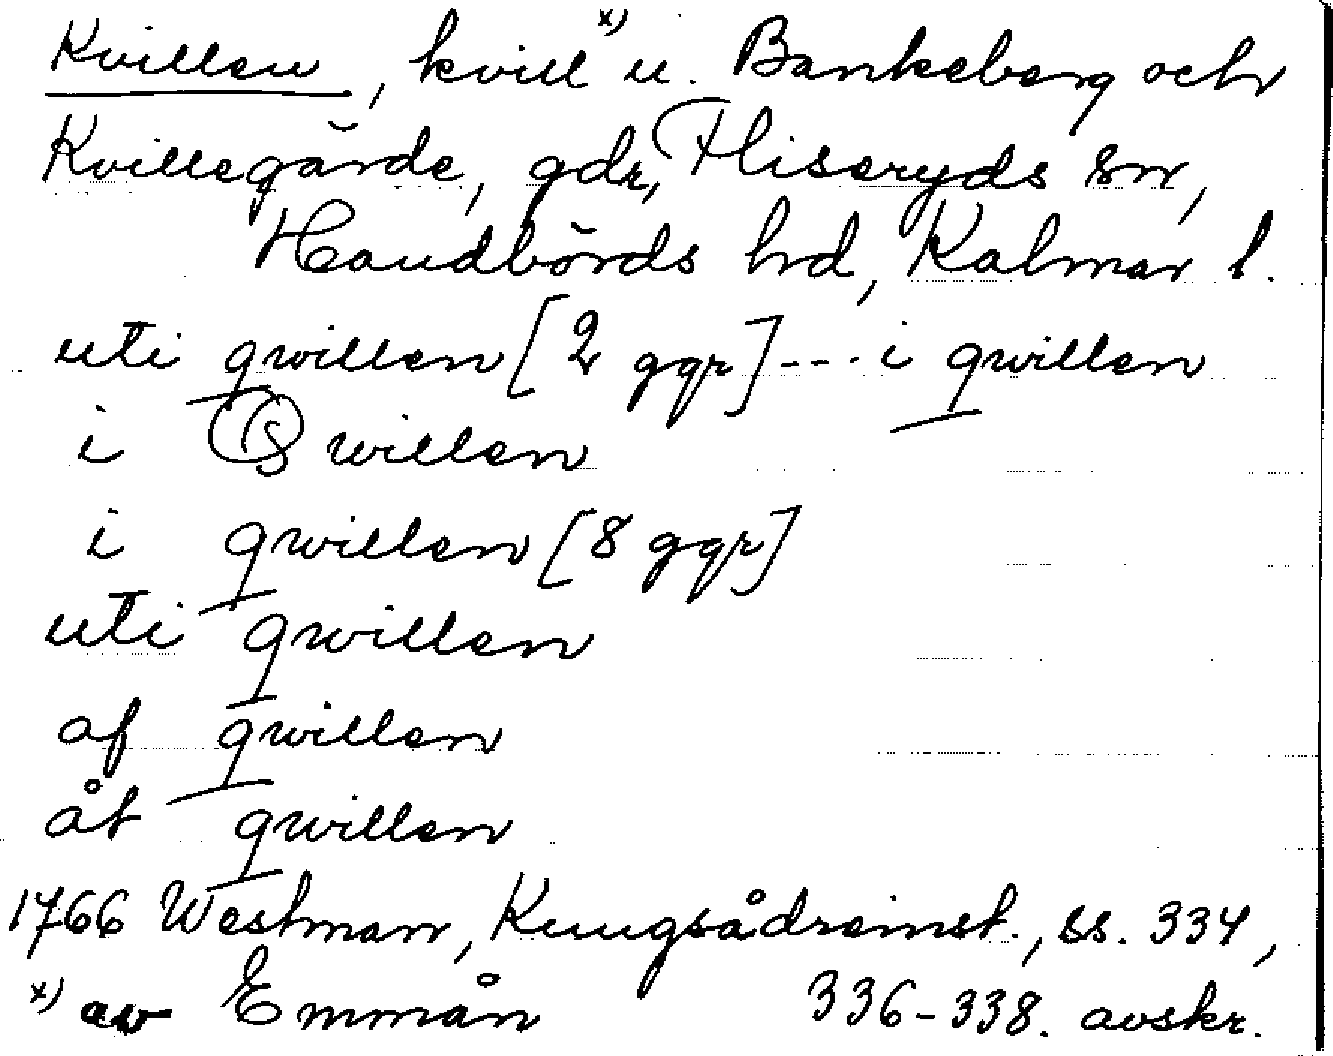 Kvillen, kvill x) u. Bankeberg och
Kvillegärde, gdr, Fliseryds sn,
Handbörds hrd, Kalmar l.
uti qwillen [2 ggr] --- i qwillen
i Qwillen
i qwillen [8 ggr]
uti qwillen
af qwillen
åt qwillen
1766 Westman, Kungsådreinst., ss. 334,
x) av Emmån 336-338. avskr.